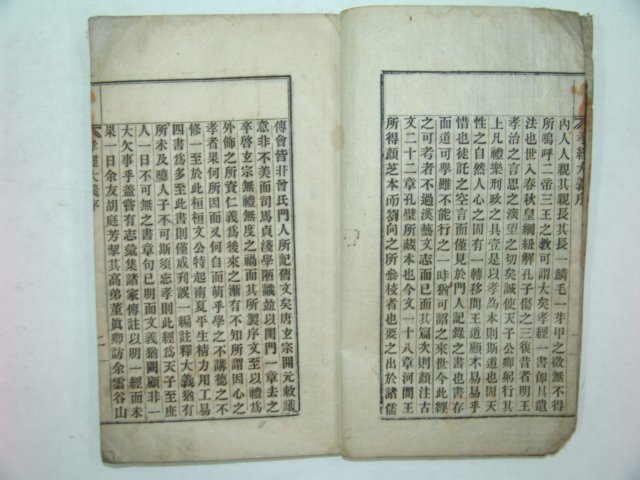 孝經大義序
內人人親其親長其長一鱗毛一芽甲之微無不得
所嗚呼二帝三王之敎可謂大矣孝經一書卽其遺
法也世入春秋皇綱紐解孔子傷之三復昔者明王
孝治之言思之深望之切矣誠使天子公卿躬行其
上凡禮樂刑政之具壹是以孝為本則斯道也固天
性之自然人心之固有一轉移間王道顧不易易乎
惜也徒託之空言而僅見於門人記錄之書也書存
而道可學雖不能行之一時猶可詔之來世今此經
之可考者不過漢藝文志而已而其篇次則顔注古
文二十二章孔壁所藏本也今文一十八章河間王
所得顔芝本而劉向之所叅校者也要之出於諸儒
傅會皆非曾氏門人所記舊文矣唐玄宗開元敕議
意非不美而司馬貞淺學陋識並以閨門一章去之
卒啓玄宗無禮無度之禍而其所製序文至以禮為
外飾之所資仁義為後來之漸有不知所謂因心之
孝者果何所因而又何自而萌乎學之不講德之不
修一至於此桓桓文公特起南夏平生精力用工易
四書為多至此書則僅成刋誤一編註釋大義猶有
所未及噫人子不可斯須忘孝則此經為天子至庶
人一日不可無之書章句已明而文義猶闕顧非一
大欠事乎葢嘗有志彙集諸家傳註以明一經而未
果一日余友胡庭芳挈其高弟董眞卿訪余雲谷山
孝經大義序
二